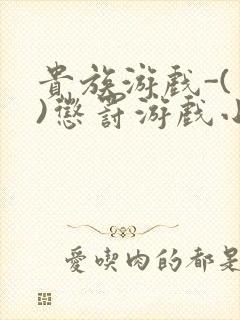 貴族游戲-(
)懲罰游戲小
愛喫肉的都是